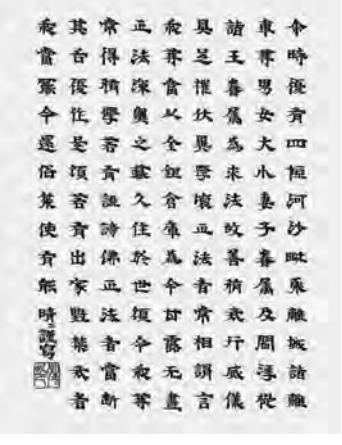 尒時復有四恒河沙毗耶離城諸離
車等男女大小妻子眷属及閻浮提
諸王眷属為求法故善脩戒行威儀
具足摧伏異學壞正法者常相謂言
我等當以金銀倉庫為令甘露无盡
正法深奥之藏久住於世願令我等
常得脩學若有誹謗佛正法者當斷
其舌復作是願若有出家毀禁戒者
我當罷令還俗策使有能
謹寫